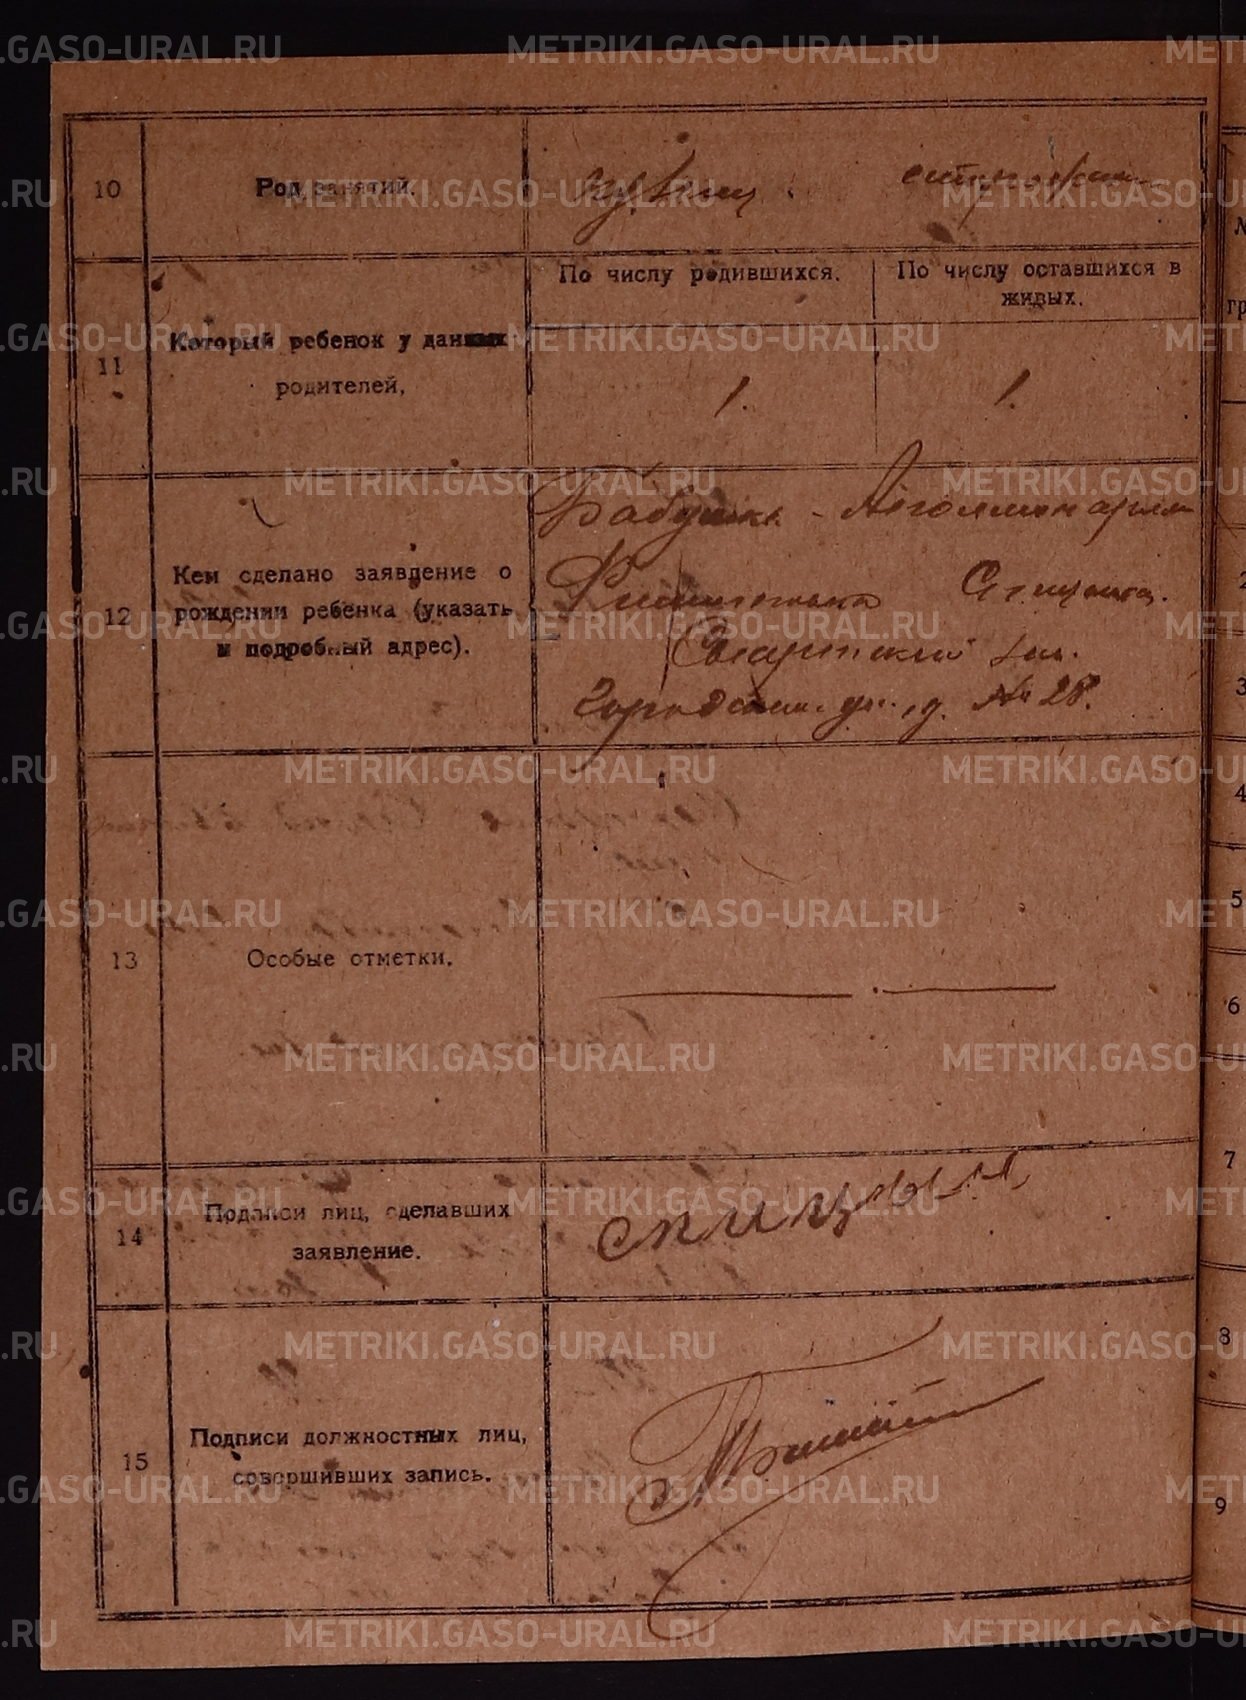 METRIKI.GASO-URAL.RU
10
Род занятий.
11
Который ребенок у данных
родителей.
По числу родившихся.
По числу оставшихся в
живых.
1.
1.
12
Кем сделано заявление о
рождении ребенка (указать
и подробный адрес).
Бабушка - Апполинария
Спицына.
д. № 28.
13
Особые отметки.
14
Подписи лиц, сделавших
заявление.
спицын
15
Подписи должностных лиц,
совершивших запись.
№
гр
2
3
4
5
6
7
8
9